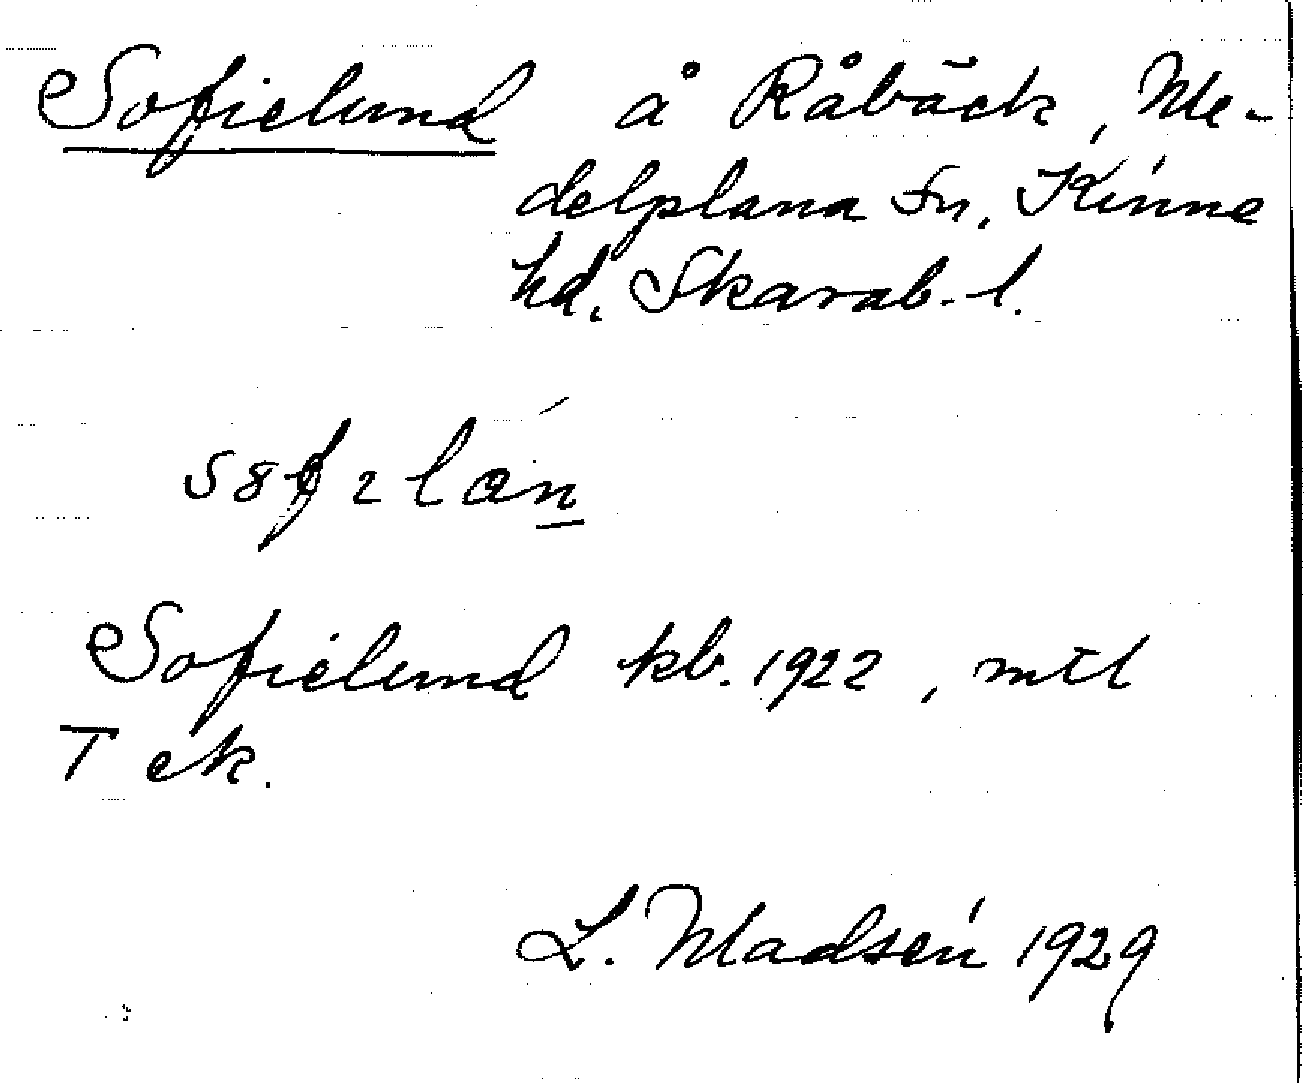 Sofielund å Råbäck, Me-
delplana sn, Kinne
hd. Skarab. l.
s8f2lan
Sofielund kb. 1922, mtl
T ek.
L. Madsén 1929